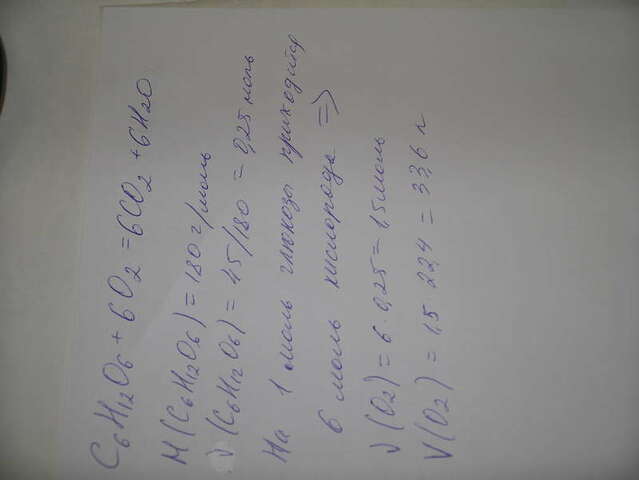 C6H12O6 + 6O2 = 6CO2 + 6H2O
M(C6H12O6) = 180 г/моль
ν(C6H12O6) = 45/180 = 0,25 моль
На 1 моль глюкозы приходится
6 моль кислорода =>
ν(O2) = 6 · 0,25 = 1,5 моль
V(O2) = 1,5 · 22,4 = 33,6 л